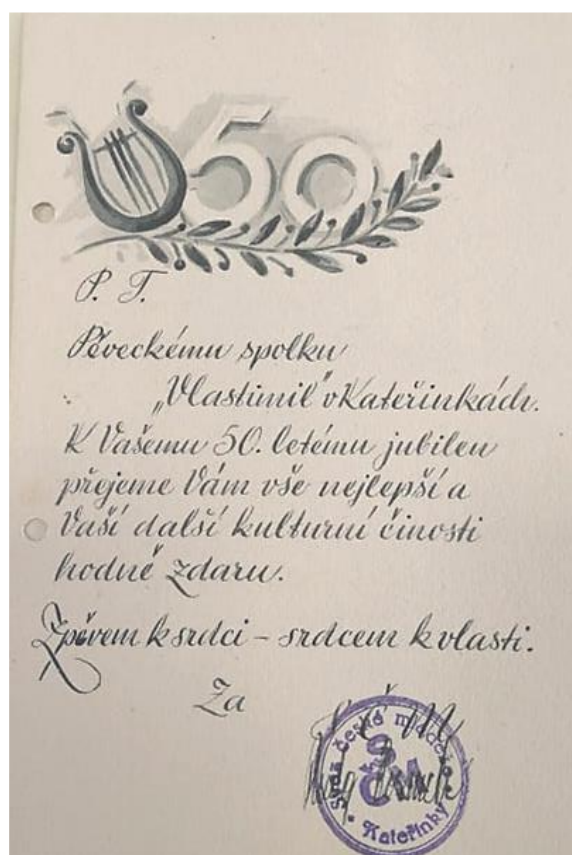 50
P. T.
Pěveckému spolku
„Vlastimil" v Kateřinkách.
K Vašemu 50. letému jubileu
přejeme Vám vše nejlepší a
Vaší další kulturní činosti
hodně zdaru.
Zpěvem k srdci – srdcem k vlasti.
Za
Svaz české mládeže
SČM
Kateřinky